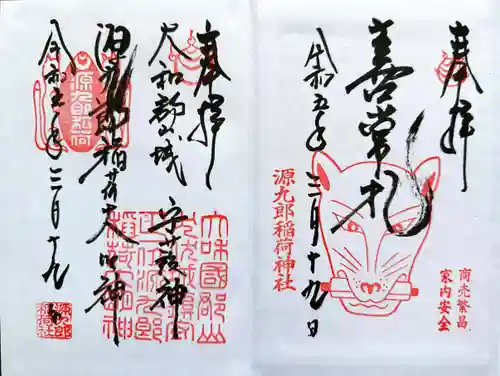 奉拝
大和郡山城 守護神
源九郎稲荷大明神
令和五年三月十九
源九郎稲荷
奉拝
善常札
令和五年三月十九日
源九郎稲荷神社
商売繁昌
家内安全